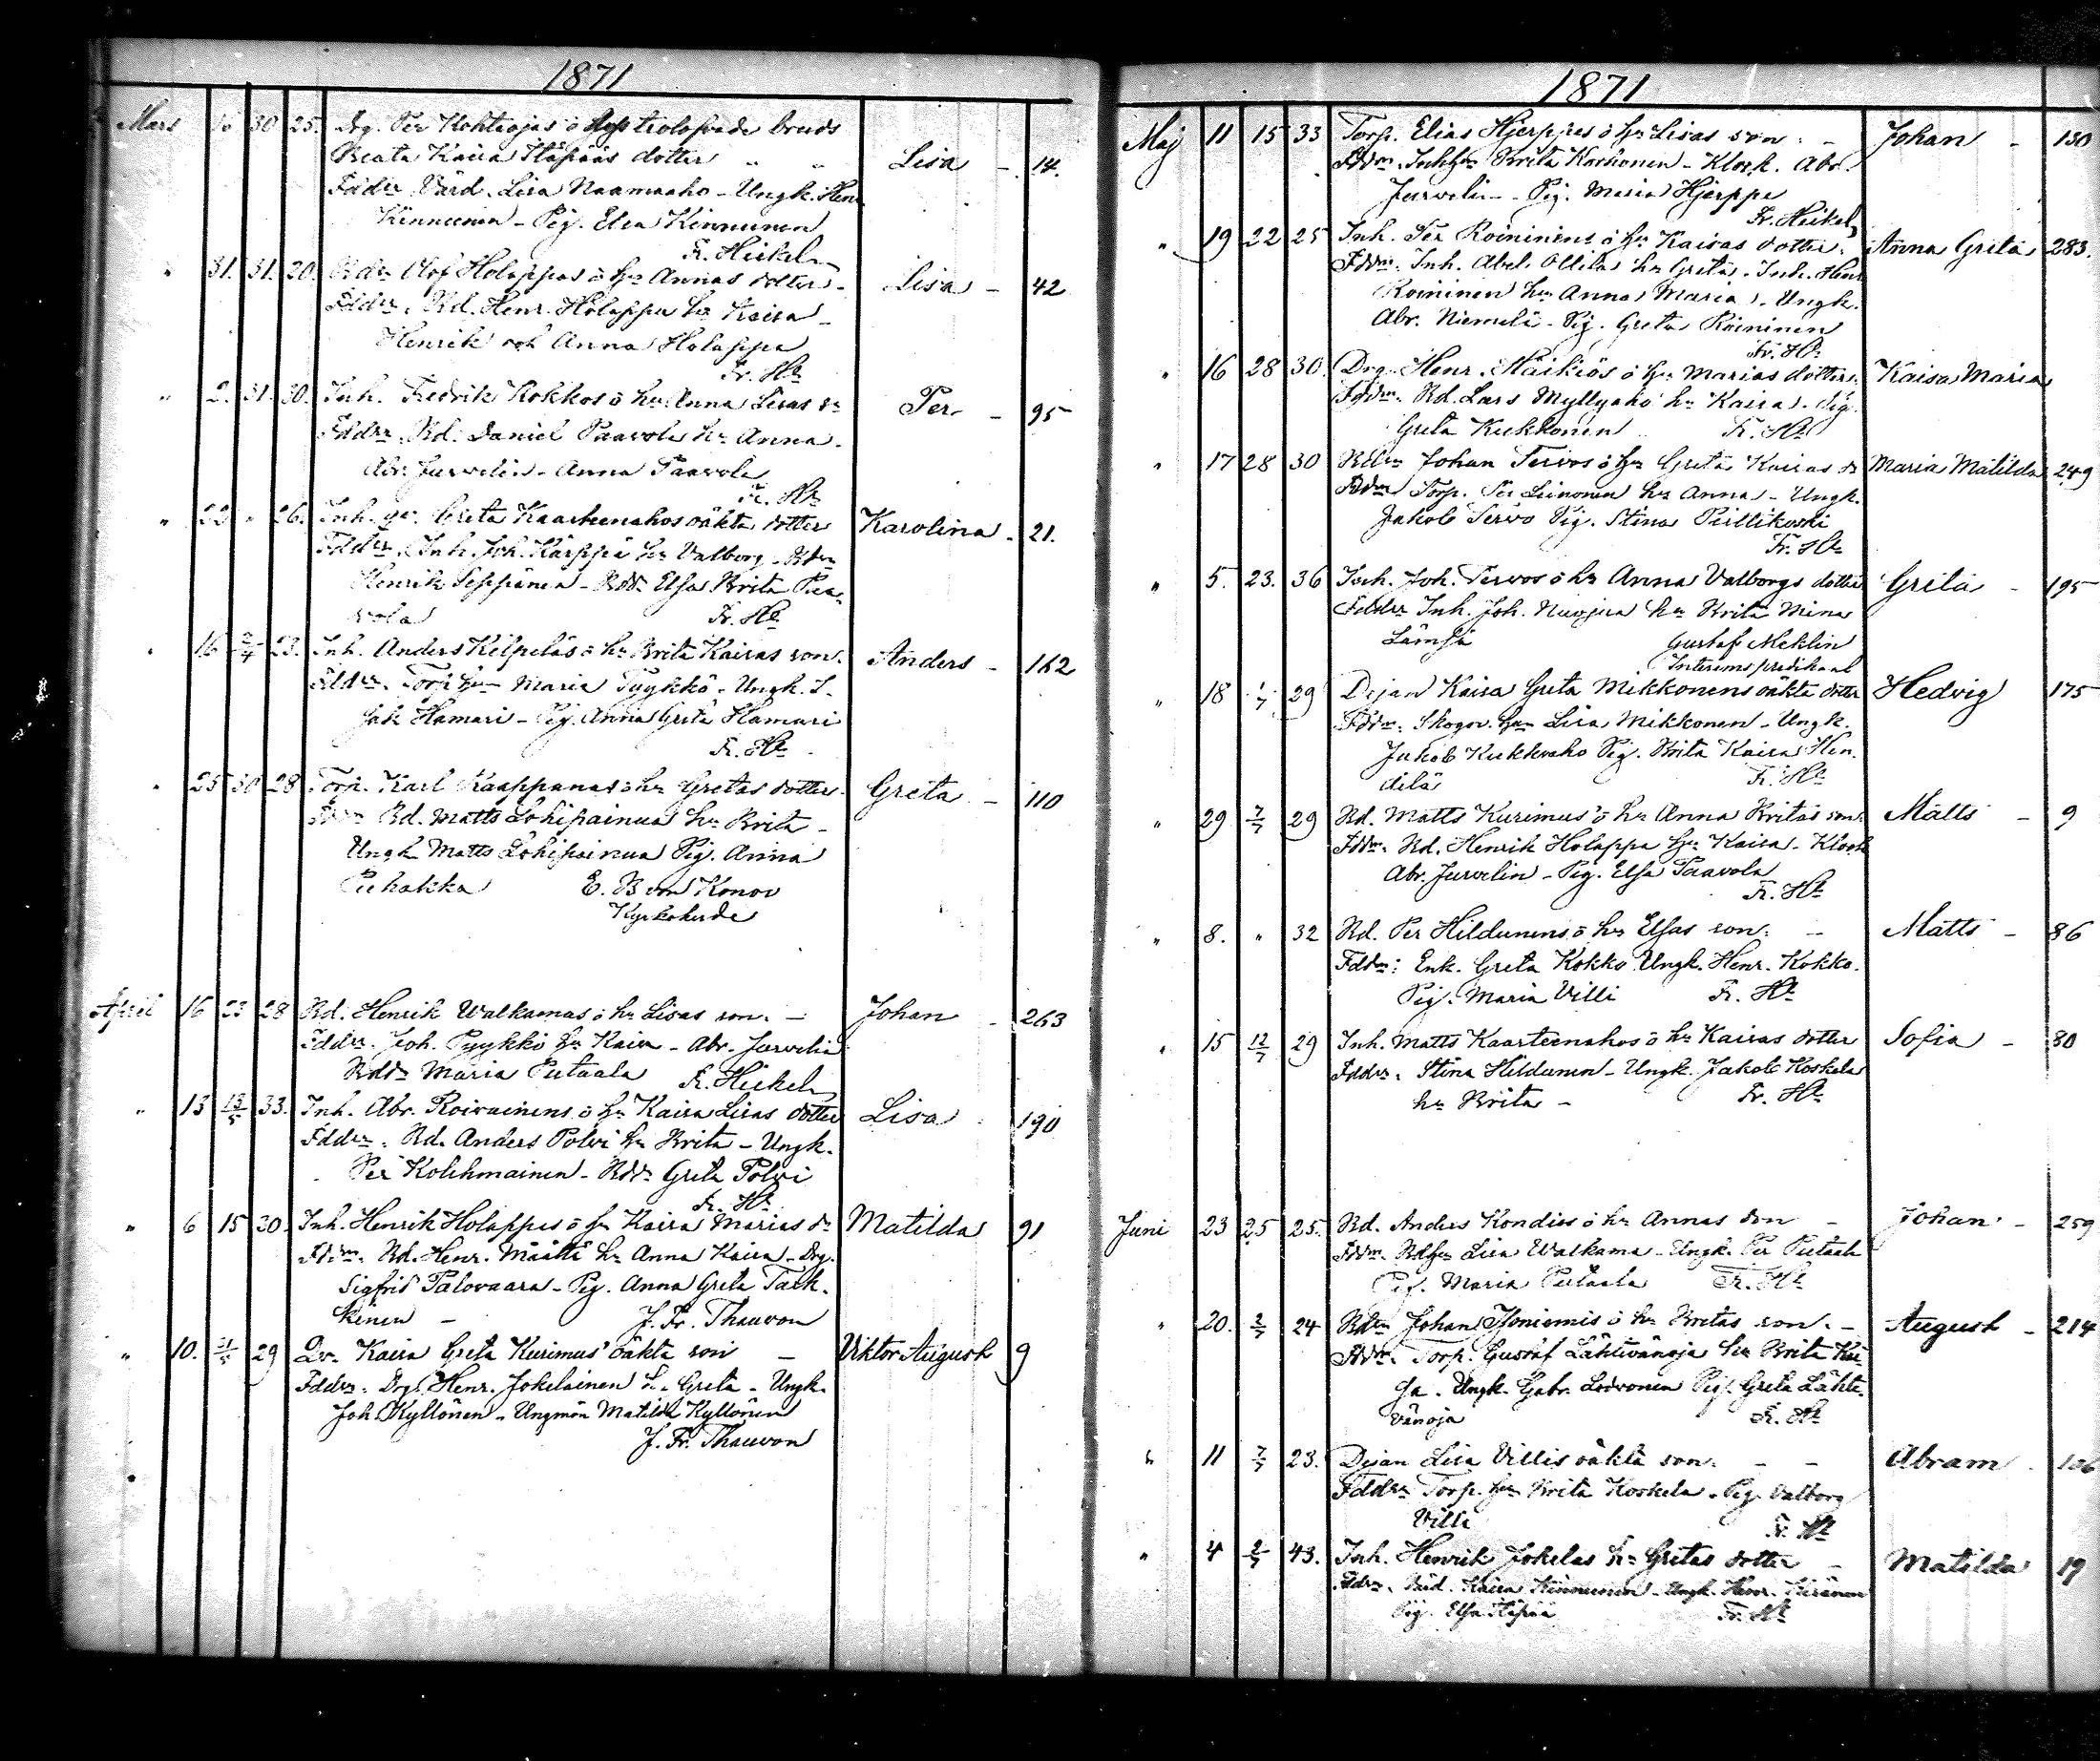 1871
Mars 16 30 25. Drg. Per Kohteojas o trolofvade bruds
Beata Kaisa Itäpääs dotter " " Lisa - 14.
Fddr. Värd. Lisa Naamaaho - Ungk. Henr
Kinnunen - Pig. Elsa Kinnunen
Fr. Heikel
" 31. 31. 20. Rdr Olof Holappas o hu Annas dotter - Lisa - 42
Fddr. Rd. Henr. Holappa hu Kaisa -
Henrik och Anna Holappa
Fr. Hl
" 2. 31. 30. Inh. Fredrik Kokkos o hu Anna Lisas sn Per - 95
Fddr. Rd. Daniel Paavola hu Anna -
Abr. Jurvelin - Anna Paavola
Fr. Hl
" 22 " 26. Inh. qv. Greta Kaarteenahos oäkta dotter Karolina - 21.
Fddr. Inh. Joh. Karppi hu Valborg - Rdr
Henrik Seppänen - Rdr. Elsa Brita Paa-
vola Fr. Hl
" 16 2/4 23. Inh. Anders Kilpeläs o hu Brita Kaisas son. Anders - 162
Fddr. Torp. hu Maria Pyykkö - Ungk. I.
Jak Hamari - Pig. Anna Greta Hamari
Fr. Hl
" 25 30 28 Torp. Karl Kaappanas o hu Gretas dotter - Greta - 110
Fddr Rd. Matts Lohipainua hu Brita -
Ungk Matts Lohipainua Pig. Anna
Puhakka E. B von Konow
Kyrkoherde
April 16 23 28 Rd. Henrik Walkamas o hu Lisas son. - Johan - 263
Fddr. Joh. Pyykkö hu Kaisa - Abr. Jurvelin
Rddr Maria Putaala Fr. Heikel
" 13 13/5 33. Inh. Abr. Roivainens o hu Kaisa Lisas dotter Lisa 190
Fddr. Rd. Anders Polvi hu Brita - Ungk.
Per Kolehmainen - Rdr. Greta Polvi
Fr. Hl
" 6 15 30. Inh. Henrik Holappas o hu Kaisa Marias dr Matilda 91
Fddr. Rd. Henr. Määttä hu Anna Kaisa - Drg.
Sigfrid Palovaara - Pig. Anna Greta Task-
kinen - J. Fr. Thauvon
" 10. 21/5 29 Dr. Kaisa Greta Kurimus' oäkta son - Viktor August 9
Fddr. Drg. Henr. Jokelainen hu Greta - Ungk.
Joh. Kyllönen - Ungmön Matilda Kyllönen
J. Fr. Thauvon
1871
Maj 11 15 33 Torp. Elias Hjerppes o hu Lisas son. - Johan - 130
Fddr. Inhhu Brita Korhonen - Klock. Abr.
Jurvelin - Pig. Maria Hjerppe
Fr. Heikel
" 19 22 25 Inh. Per Roininens o hu Kaisas dotter. Anna Greta 283.
Fddr. Inh. Abel Ollila hu Greta. Inh. Henr
Roininen hu Anna Maria. Ungk.
Abr. Niemelä - Pig. Greta Roininen
Fr. Hl
" 16 28 30. Drg. Henr. Häikiös o hu Marias dotter. Kaisa Maria
Fddr. Rd. Lars Myllyaho hu Kaisa. Pig.
Greta Kukkonen Fr. Hl
" 17 28 30 Rdr Johan Tervos o hu Greta Kaisas dr Maria Matilda 249
Fddr Torp. Per Leinonen hu Anna - Ungk.
Jakob Tervo Pig. Stina Pullikoski
Fr. Hl
" 5. 23. 36 Inh. Joh. Tervos o hu Anna Valborgs dotter Greta - 195
Fddr Inh. Joh. Nuojua hu Brita Mina
Lämsä Gustaf Meklin
Interims predikant
" 18 1/7 29 Dejan Kaisa Greta Mikkonens oäkta dotter Hedvig 175
Fddr. Skogsv. hu Lisa Mikkonen - Ungk.
Jakob Kukkoaho Pig. Brita Kaisa Hen-
dilä Fr. Hl
" 29 2/7 29 Rd. Matts Kurimus' o hu Anna Britas son. Matts - 9
Fddr. Rd. Henrik Holappa hu Kaisa - Klock
Abr. Jurvelin - Pig. Elsa Paavola
Fr. Hl
" 8. " 32 Rd. Per Hildunens o hu Elsas son. - Matts - 86
Fddr: Enk. Greta Kokko. Ungk. Henr. Kokko.
Pig. Maria Villi Fr. Hl
" 15 12/7 29 Inh. Matts Kaarteenahos o hu Kaisas dotter Sofia - 80
Fddr. Stina Hildunen - Ungk. Jakob Koskela
hu Brita - Fr. Hl
Juni 23 25 25. Rd. Anders Kondies o hu Annas son - Johan - 259
Fddr. Rdhu Lisa Walkama - Ungk. Per Putaala
Pig. Maria Putaala Fr. Hl
" 20. 2/7 24 Rdr Johan Isoniemis o hu Britas son. - August - 214
Fddr. Torp. Gustaf Lähtevänoja hu Brita Kai
sa. Ungk. Gabr. Pig. Greta Lähte-
vänoja Fr. Hl
" 11 2/7 23. Dejan Lisa Villis oäkta son. - - Abram 106
Fddr. Torp. hu Brita Koskela. Pig. Valborg
Villi Fr. Hl
" 4 2/7 43. Inh. Henrik Jokelas hu Gretas dotter - Matilda 19
Fddr. Kaisa Kinnunen - Ungk. Henr.
Pig. Elsa Itäpää Fr. Hl